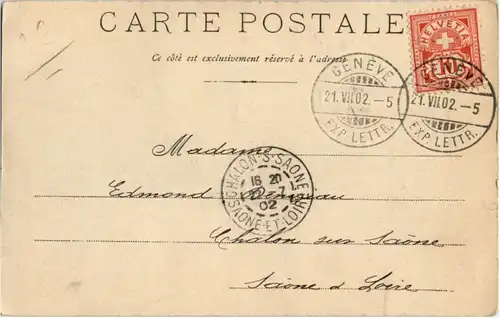 CARTE POSTALE
Ce côté est exclusivement réservé à l'adresse
HELVETIA
10
GENÈVE
21.VII.02.–5
EXP. LETTR.
GENÈVE
21.VII.02.–5
EXP. LETTR.
Madame
CHALON-S-SAONE
16 20
7
02
SAONE-ET-LOIRE
Edmond
Chalon sur Saône
Saône & Loire